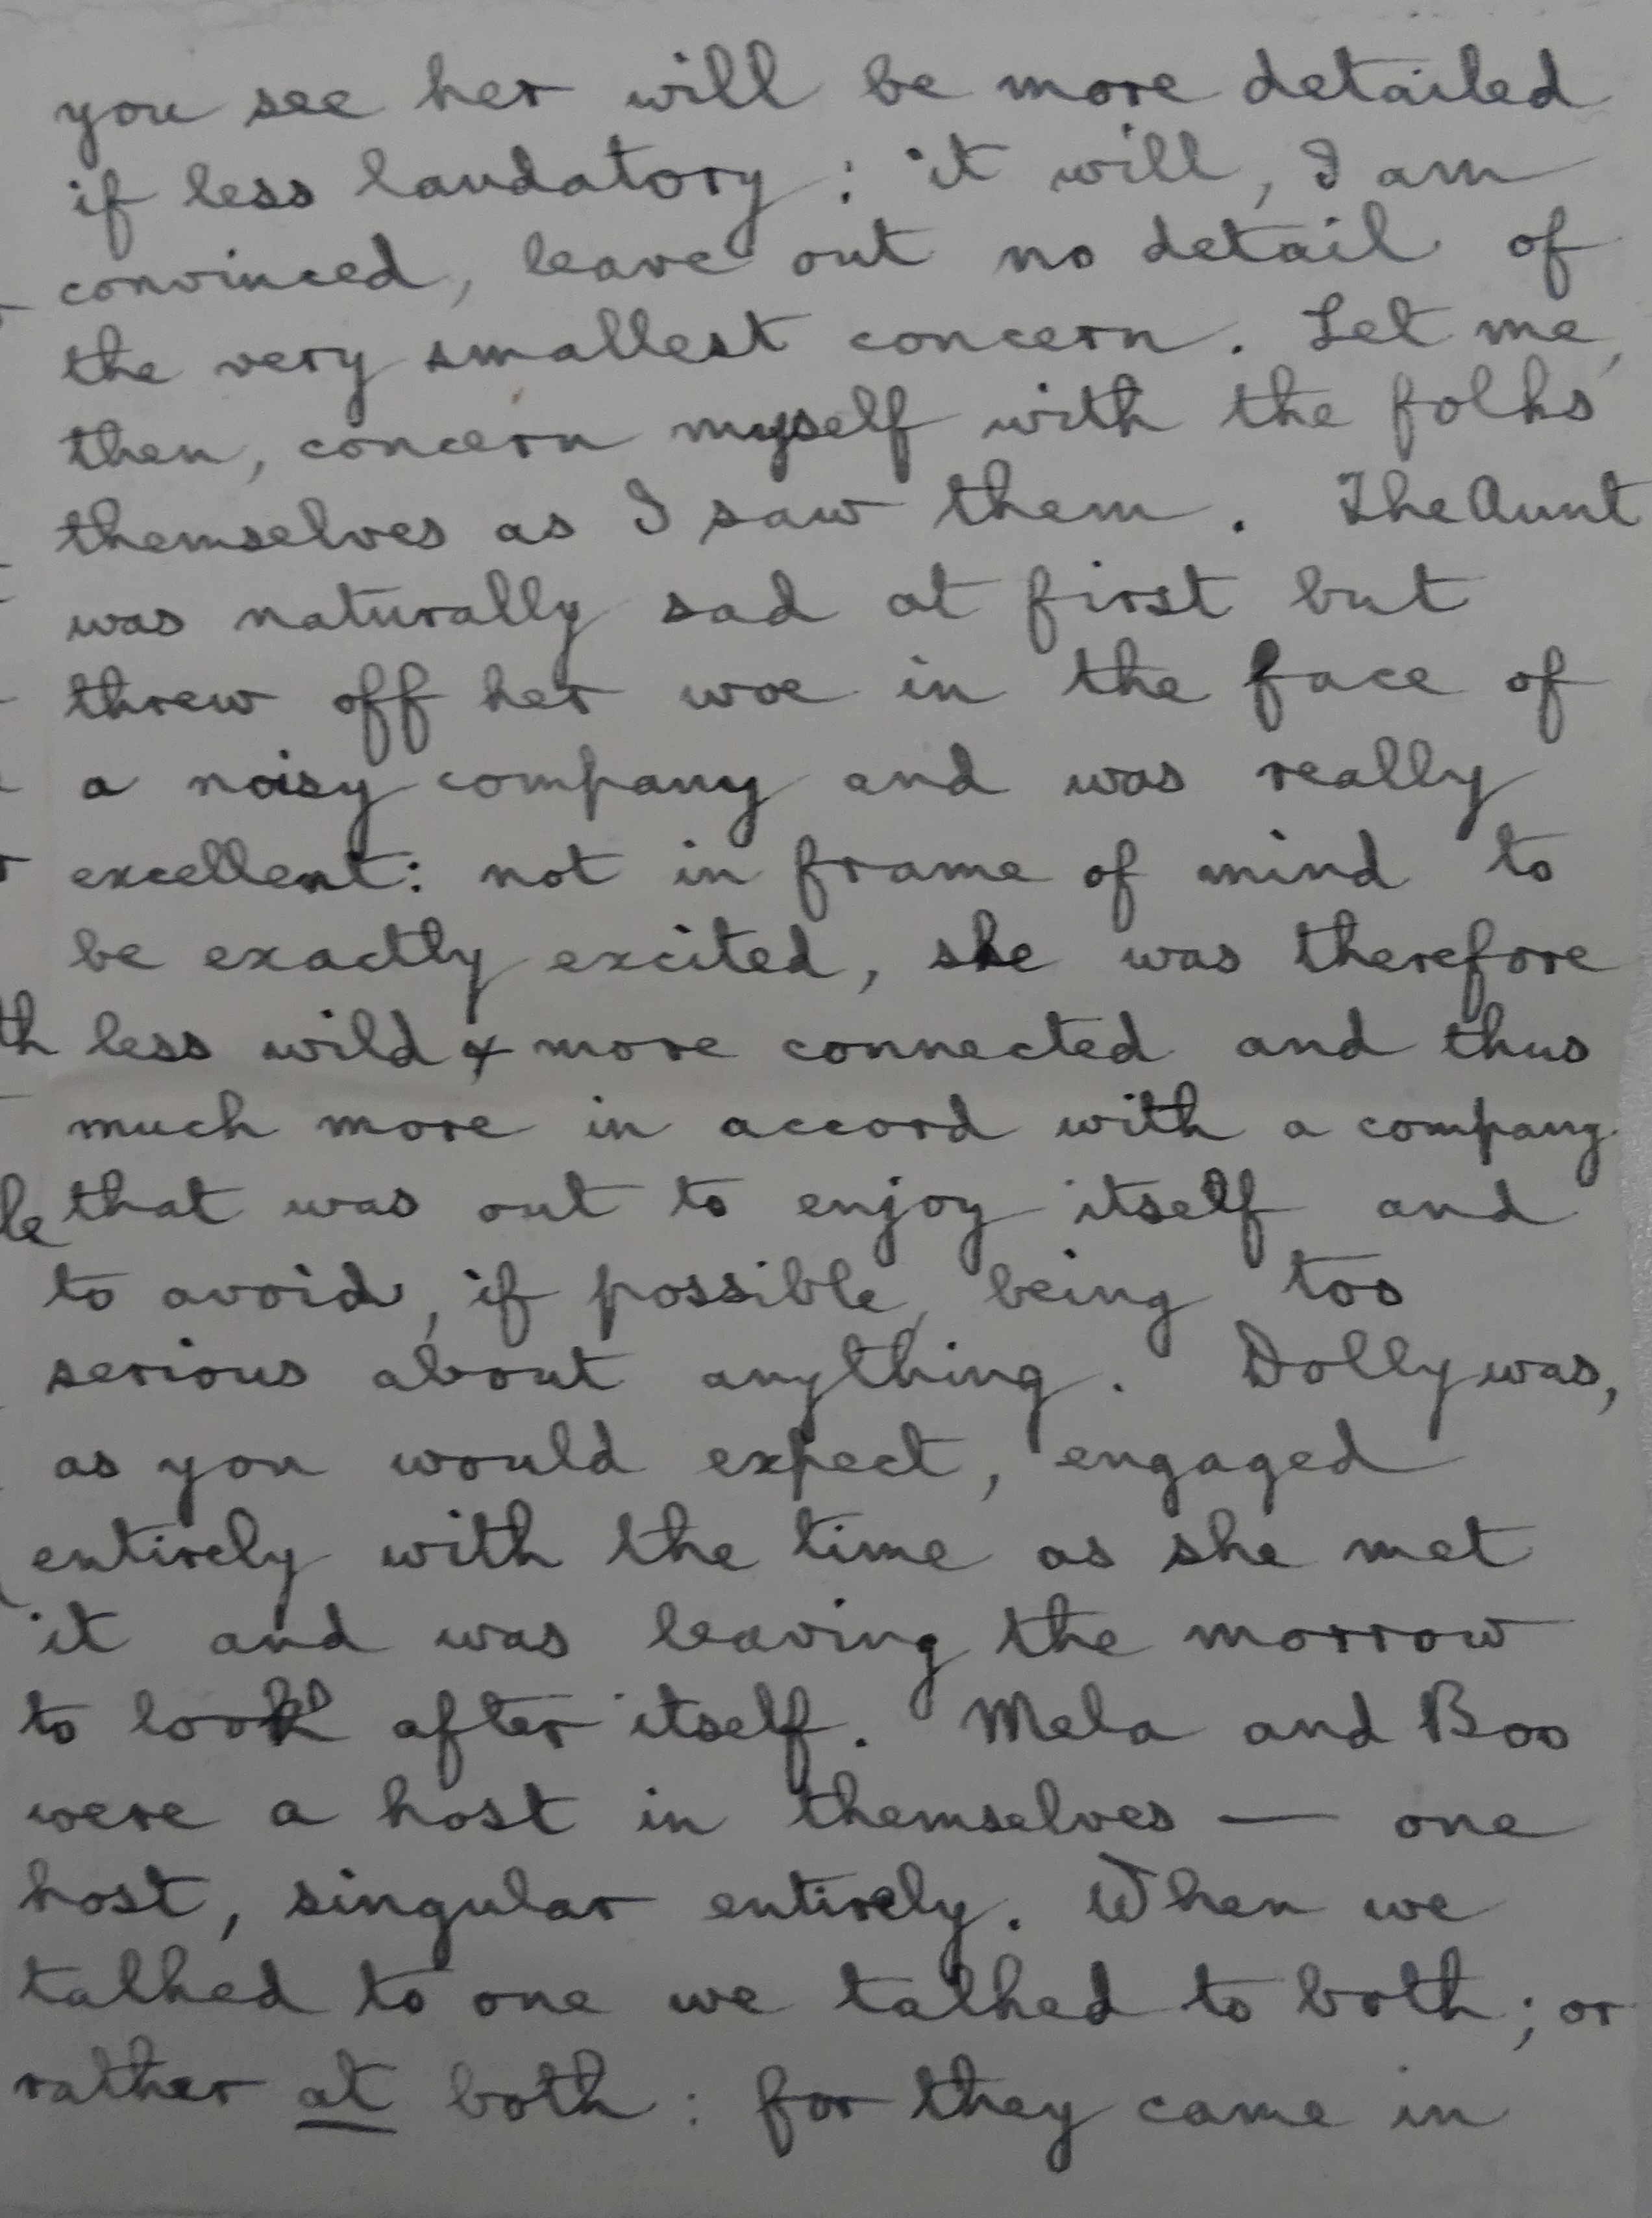 you see her will be more detailed
if less laudatory : it will, I am
convinced, leave out no detail of
the very smallest concern. Let me,
then, concern myself with the folks
themselves as I saw them. The Aunt
was naturally sad at first but
threw off her woe in the face of
a noisy company and was really
excellent: not in frame of mind to
be exactly excited, she was therefore
less wild & more connected and thus
much more in accord with a company
that was out to enjoy itself and
to avoid, if possible, being too
serious about anything. Dolly was,
as you would expect, engaged
entirely with the time as she met
it and was leaving the morrow
to look after itself. Mela and Boo
were a host in themselves — one
host, singular entirely. When we
talked to one we talked to both; or
rather at both : for they came in